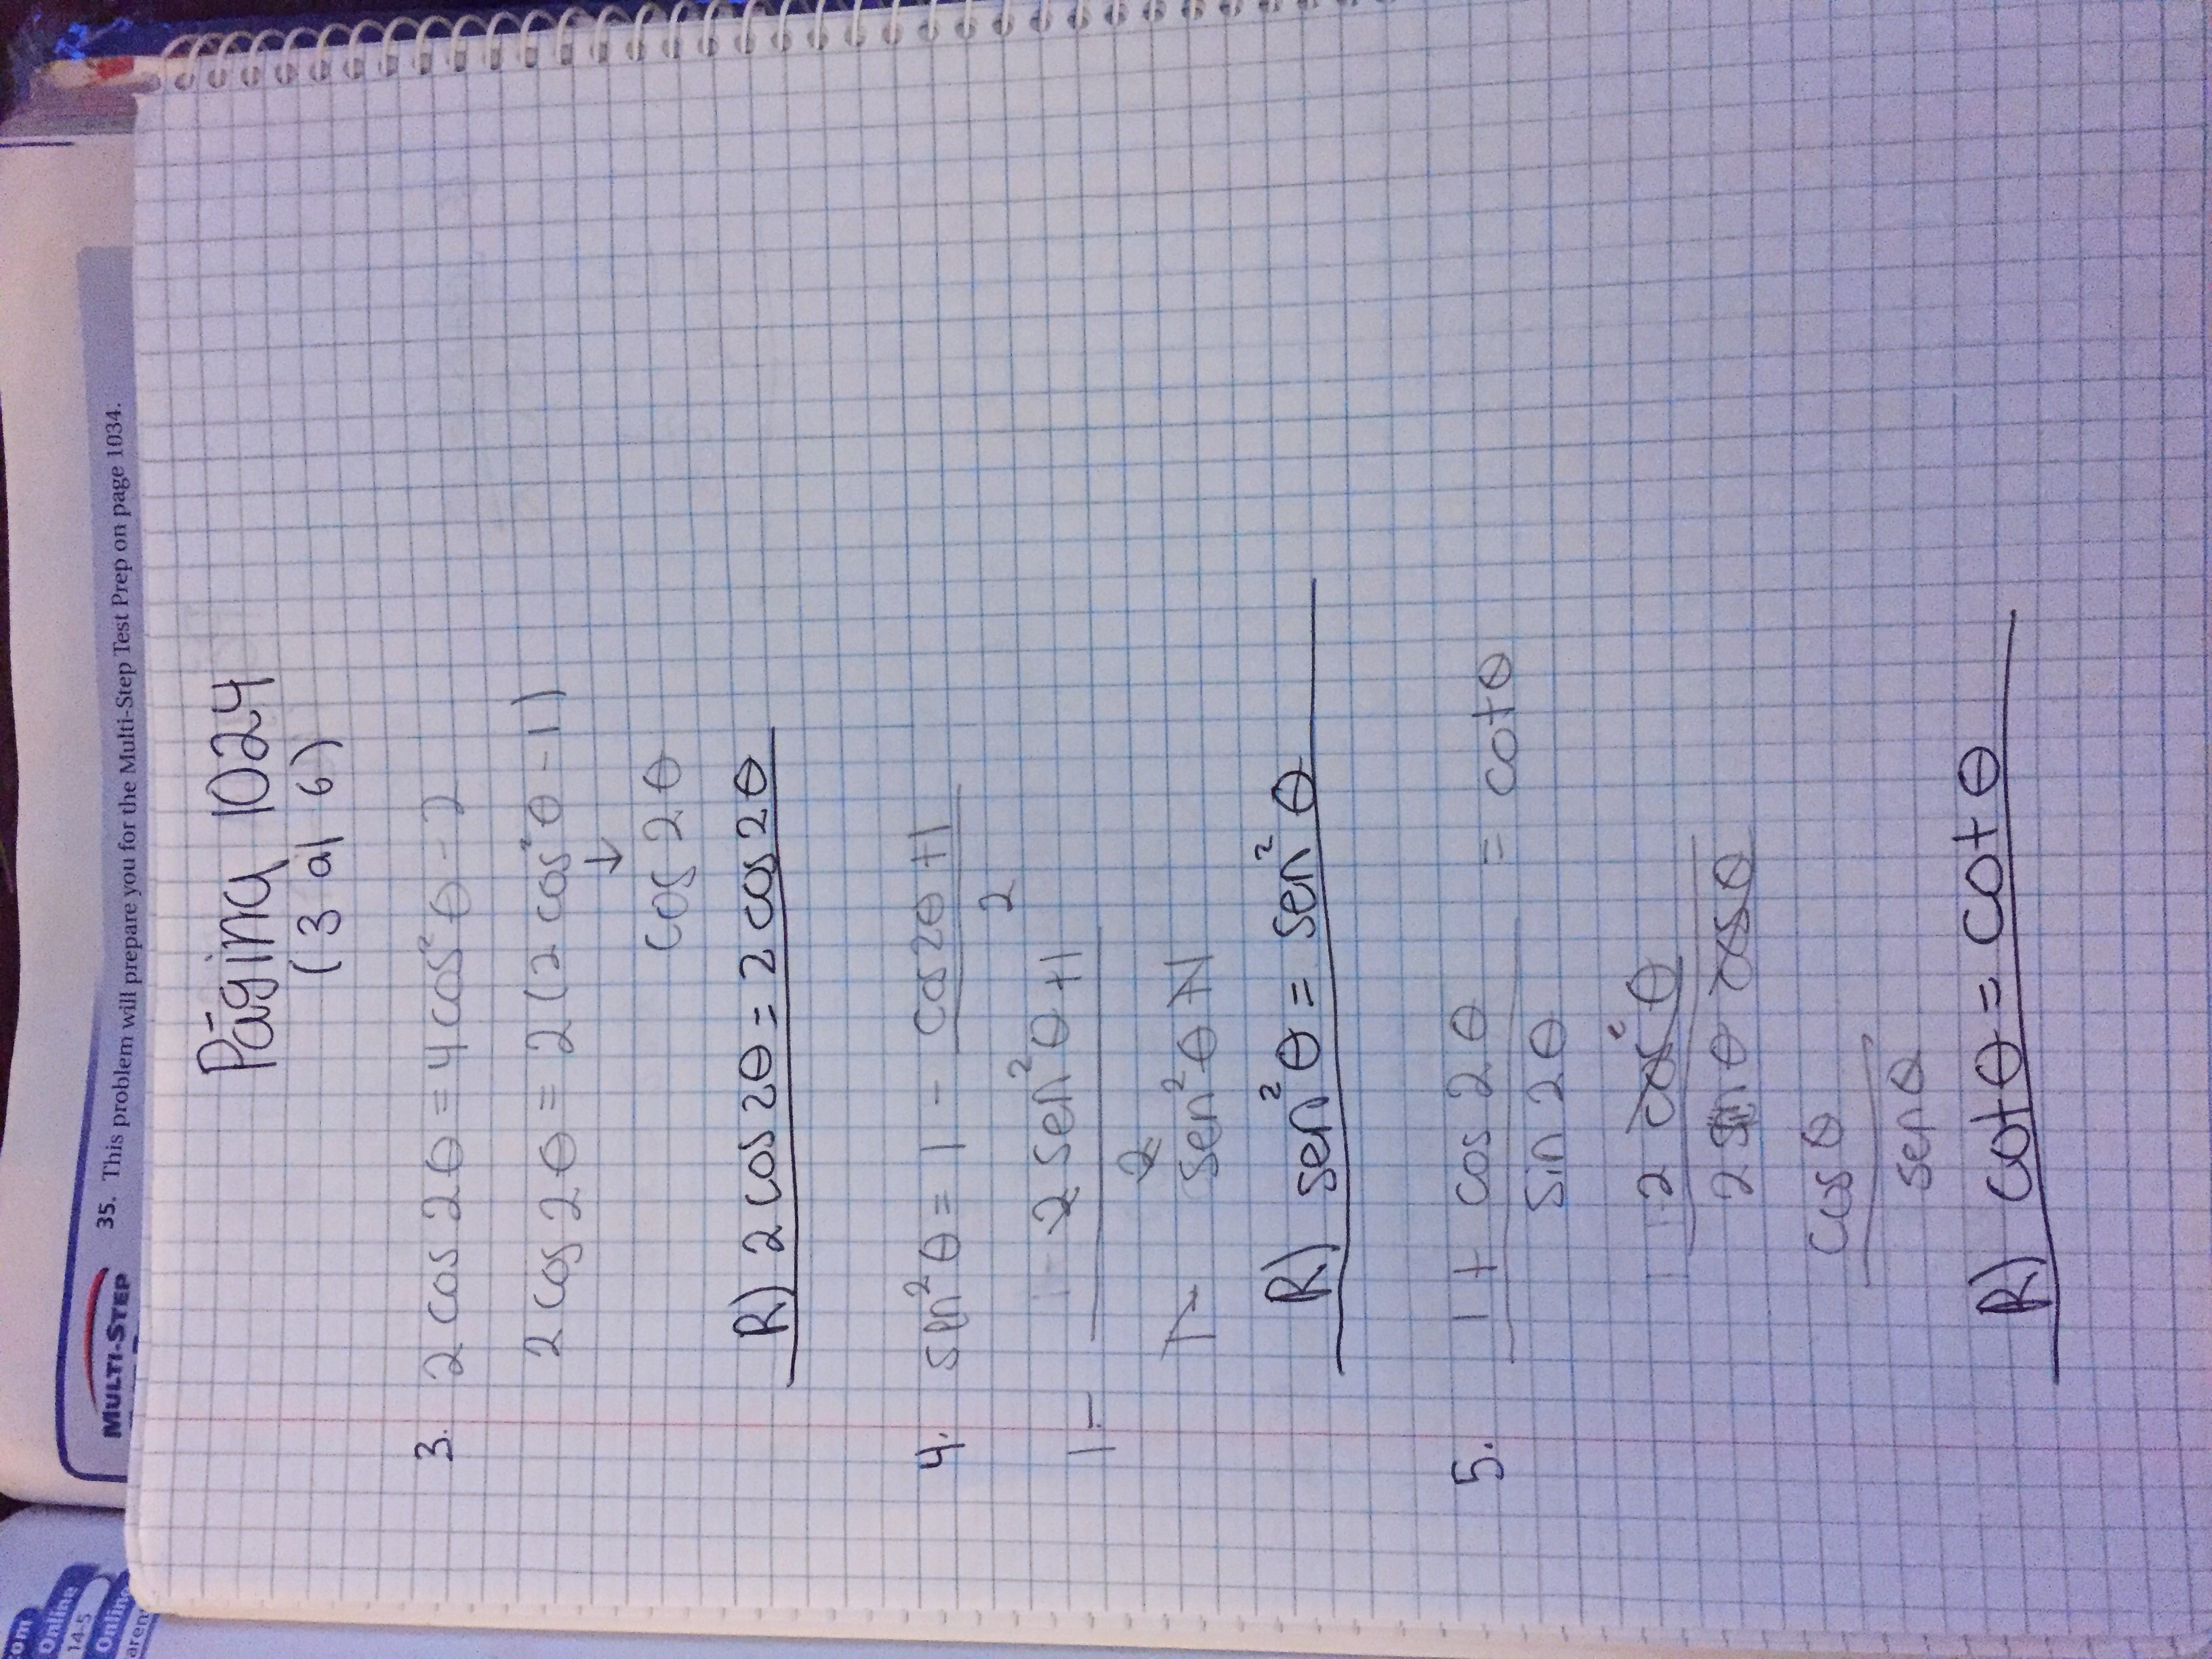 MULTI-STEP 35. This problem will prepare you for the Multi-Step Test Prep on page 1034.
Online
14-5
Online
Página 1024
(3 al 6)
3. 2 cos 2θ = 4 cos² θ - 2
2 cos 2θ = 2 (2 cos² θ - 1)
↓
cos 2θ
R) 2 cos 2θ = 2 cos 2θ
4. sin² θ = 1 - cos 2θ + 1
2
1 - 2 sen² θ + 1
2
sen² θ + 1
R) sen² θ = sen² θ
5. 1 + cos 2θ = cot θ
sin 2θ
2 cos² θ
2 sin θ cos θ
cos θ
sen θ
R) cot θ = cot θ